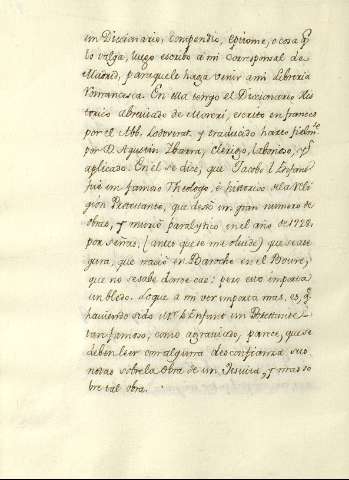 un Diccionario, compendio, epitome, o cosa q̃
lo valga, luego escribo a mi corresponsal de
Madrid, para que le haga venir a mi Libreria
Romancesca. En ella tengo el Diccionario His
torico abreviado de Moreri, escrito en frances
por el Abb. Ladvocat, y traducido harto fielm.te
por D. Agustin Ibarra, clerigo, laborioso, y
aplicado. En él se dice, que Jacobo L'Enfant
fué un famoso Theologo, é historico de la Reli
gion Protestante, que dexó un gran numero de
obras, y murió paralytico en el año de 1728.
por señas, (antes que se me olvide) que se ase
gura, que nació en Bazoche en el Boure,
que no se sabe donde cae: pero esto importa
un bledo. Lo que a mi ver importa mas, es, q̃
haviendo sido Mr. L'Enfant un Protestante
tan famoso, como agraviado, parece, que se
deben leer con alguna desconfianza sus
notas sobre la obra de un Jesuita, y mas so
bre tal obra.